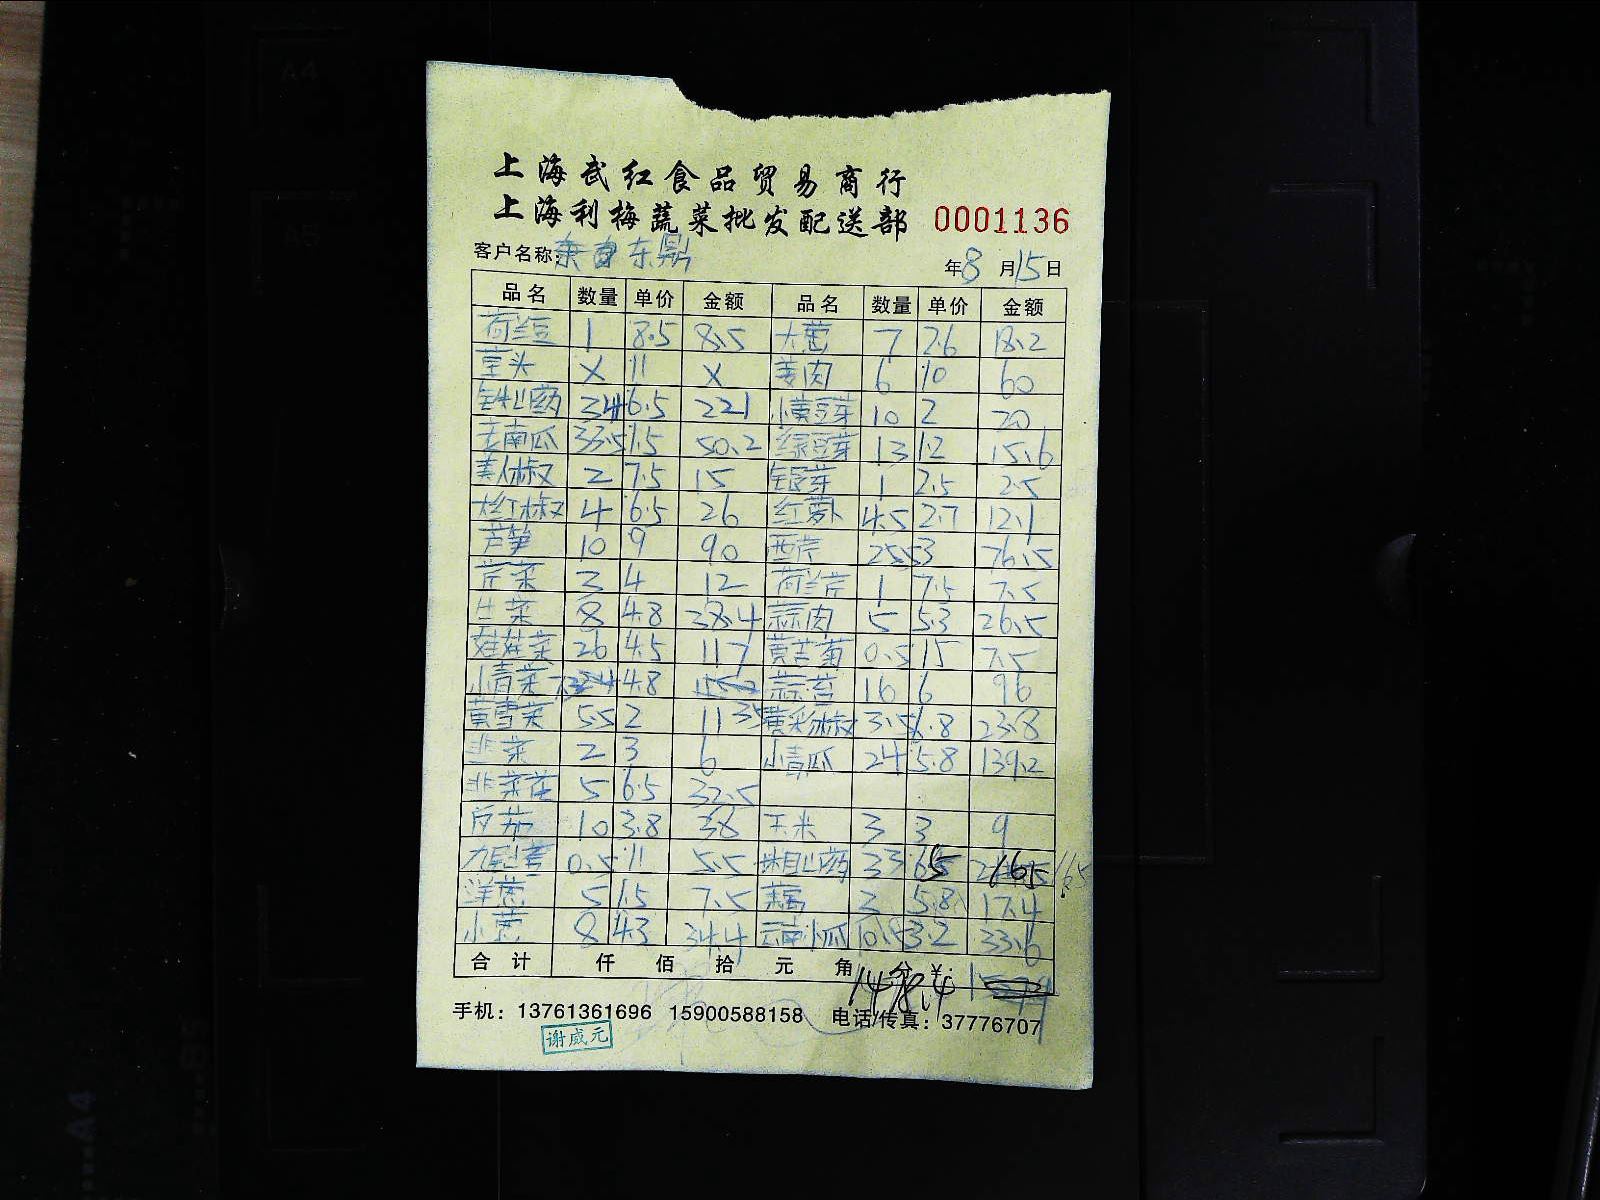 上海武红食品贸易商行
上海利梅蔬菜批发配送部 0001136
客户名称: 东鼎 年8月15日
品名 数量 单价 金额 品名 数量 单价 金额
荷兰豆 1 8.5 8.5 大葱 7 2.6 18.2
茧头 X 11 X 姜肉 6 10 60
铁山药 34 6.5 221 小黄豆芽 10 2 20
老南瓜 33.5 1.5 50.2 绿豆芽 13 1.2 15.6
美人椒 2 7.5 15 银芽 1 2.5 2.5
大红椒 4 6.5 26 红萝卜 4.5 2.7 12.1
芦笋 10 9 90 西芹 25.5 3 76.5
芹菜 3 4 12 荷兰芹 1 7.5 7.5
生菜 8 4.8 38.4 蒜肉 5 5.3 26.5
娃娃菜 26 4.5 117 黄苦菊 0.5 15 7.5
小青菜 4.8 蒜苔 16 6 96
黄雪菜 5.5 2 11 黄彩椒 3.5 6.8 23.8
韭菜 2 3 6 小青瓜 24 5.8 139.2
韭菜花 5 6.5 32.5
番茄 10 3.8 38 玉米 3 3 9
九层塔 0.5 11 5.5 粗山药 33 65 165
洋葱 5 1.5 7.5 藕 3 5.8 17.4
小葱 8 4.3 34.4 云南小瓜 10.5 3.2 33.6
合计 仟 佰 拾 元 角 分 ¥: 1498.4
手机：13761361696 15900588158 电话/传真：37776707
谢威元